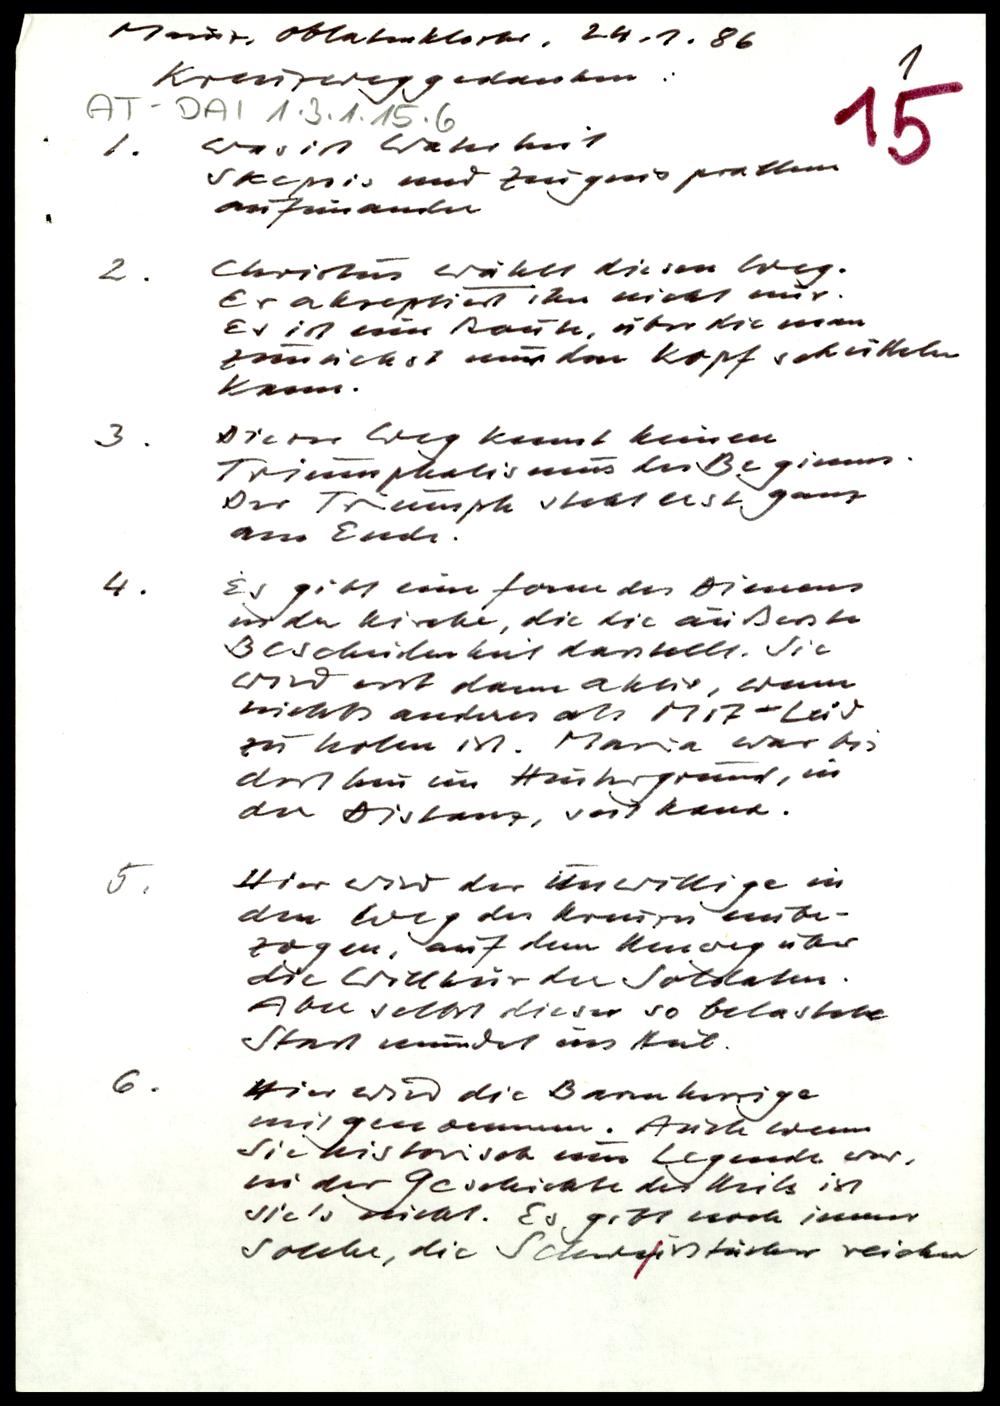 Mainz, Oblatenkloster, 24.1.86
1
Kreuzweggedanken:
AT-DAI 1.3.1.15.6
15
1. Was ist Wahrheit
Skepsis und Zeugnis prallen
aufeinander
2. Christus wählt diesen Weg.
Er akzeptiert ihn nicht nur.
Es ist eine Route, über die man
zunächst nur den Kopf schütteln
kann.
3. Dieser Weg kennt keinen
Triumphalismus des Beginns.
Der Triumph steht erst ganz
am Ende.
4. Es gibt eine Form des Dienens
in der Kirche, die die äußerste
Bescheidenheit darstellt. Sie
wird erst dann aktiv, wenn
nichts anderes als Mit-Leid
zu holen ist. Maria war bis
dorthin im Hintergrund, in
der Distanz, seit Kana.
5. Hier wird der Unwillige in
den Weg des Kreuzes einbe-
zogen, auf dem Umweg über
die Willkür der Soldaten.
Aber selbst dieser so belastete
Start mündet ins Heil.
6. Hier wird die Barmherzige
mitgenommen. Auch wenn
sie historisch eine Legende war,
in der Geschichte des Heils ist
sie's nicht. Es gibt noch immer
solche, die Schweißtücher reichen